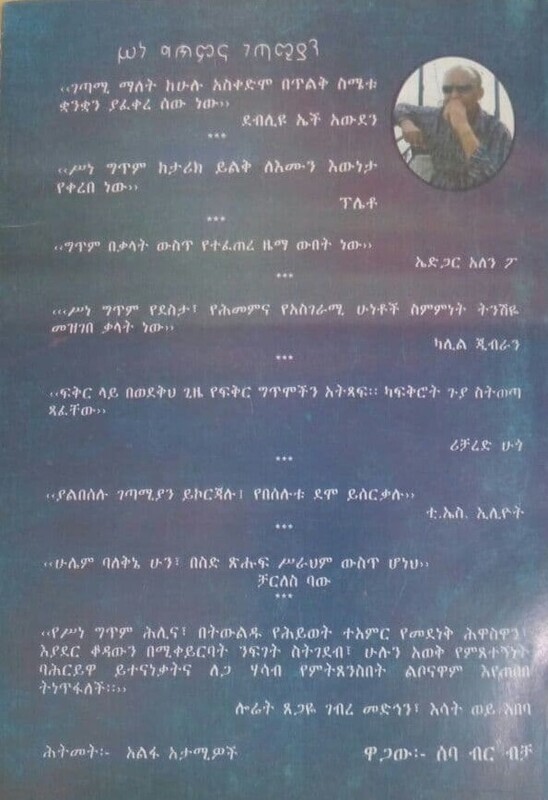 ሥነ ግጥምና ገጣሚያን
‹‹ገጣሚ ማለት ከሁሉ አስቀድሞ በጥልቅ ስሜቱ
ቋንቋን ያፈቀረ ሰው ነው››
ደብሊዩ ኤች አውደን
***
‹‹ሥነ ግጥም ከታሪክ ይልቅ ለእሙን እውነታ
የቀረበ ነው››
ፕሌቶ
***
‹‹ግጥም በቃላት ውስጥ የተፈጠረ ዜማ ውበት ነው››
ኤድጋር አለን ፖ
***
‹‹ሥነ ግጥም የደስታ፣ የሕመምና የአስገራሚ ሁነቶች ስምምነት ትንሽዬ
መዝገበ ቃላት ነው››
ካሊል ጂብራን
***
‹‹ፍቅር ላይ በወደቅህ ጊዜ የፍቅር ግጥሞችን አትጻፍ፡፡ ካፍቅሮት ጉያ ስትወጣ
ጻፈቸው››
ሪቻረድ ሁጎ
***
‹‹ያልበሰሉ ገጣሚያን ይኮርጃሉ፣ የበሰሉቱ ደሞ ይሰርቃሉ››
ቲ.ኤስ. ኢሊዮት
***
‹‹ሁሌም ባለቅኔ ሁን፣ በስድ ጽሑፍ ሥራህም ውስጥ ሆነህ››
ቻርለስ ባው
***
‹‹የሥነ ግጥም ሕሊና፣ በትውልዱ የሕይወት ተአምር የመደነቅ ሕዋስዋን፣
እያደር ቆዳውን በሚቀይርባት ንፍገት ስትገደብ፣ ሁሉን አወቅ የምጸተኝነት
ባሕርይዋ ይተናነቃትና ለጋ ሃሳብ የምትጸንስበት ልቦናዋም እየጠበበ
ትነጥፋለች፡፡››
ሎሬት ጸጋዬ ገብረ መድኅን፣ እሳት ወይ አበባ
ሕትመት፡- አልፋ አታሚዎች
ዋጋው፡- ሰባ ብር ብቻ